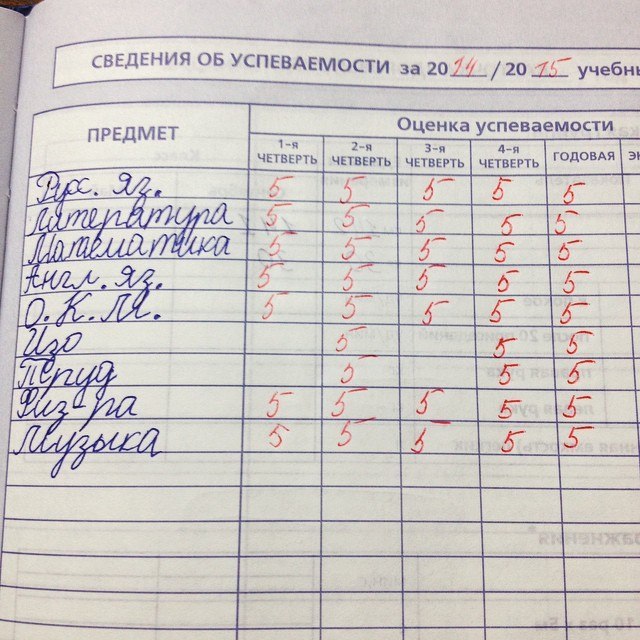 СВЕДЕНИЯ ОБ УСПЕВАЕМОСТИ за 2014 / 2015 учебны
ПРЕДМЕТ Оценка успеваемости
1-я ЧЕТВЕРТЬ 2-я ЧЕТВЕРТЬ 3-я ЧЕТВЕРТЬ 4-я ЧЕТВЕРТЬ ГОДОВАЯ ЭК
Рус. яз. 5 5 5 5 5
Литература 5 5 5 5 5
Математика 5 5 5 5 5
Англ. яз. 5 5 5 5 5
О. К. М. 5 5 5 5 5
Изо 5 5 5
Труд 5 5 5
Физ-ра 5 5 5 5 5
Музыка 5 5 5 5 5